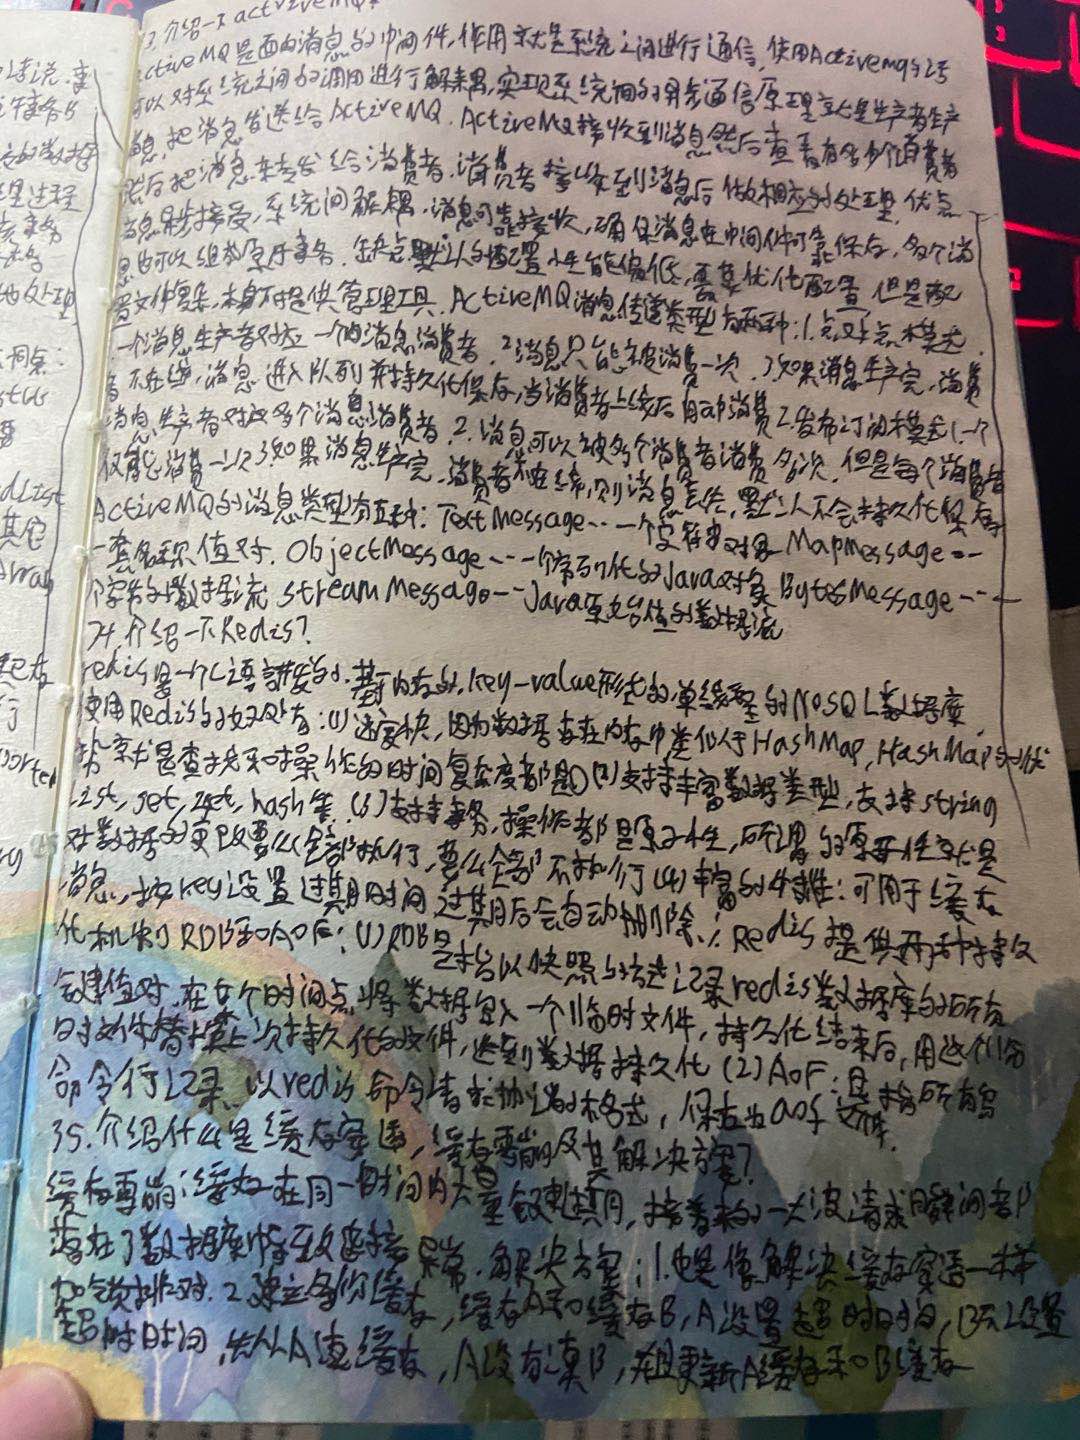 介绍一下activeMQ?
ActiveMQ是面向消息的中间件,作用就是系统之间进行通信,使用Activemq
可以对系统之间的调用进行解耦,实现系统间的异步通信原理就是生产者生产
息,把消息发送给ActiveMQ. ActiveMQ接收到消息然后查看有多少个消费者
然后把消息转发给消费者.消费者接收到消息后做相应的处理.优点
消息异步接受,系统间解耦,消息可靠接收,确保消息在中间件可靠保存,多个消
息也可以组成原子事务.缺点默认的配置性能偏低,需要优化配置,但是配
置文件复杂,本身不提供管理工具.ActiveMQ消息传递类型有两种:1.点对点模式.
一个消息生产者对应一个消息消费者.2消息只能被消费一次.3如果消息生产完,消费
者不在线,消息进入队列并持久化保存,当消费者上线后自动消费2.发布订阅模式1.一个
消息生产者对应多个消息消费者.2.消息可以被多个消费者消费多次,但是每个消费者
仅能消费一次3如果消息生产完,消费者不在线,则消息丢失,默认不会持久化保存
ActiveMQ的消息类型有五种:TextMessage--一个字符串对象 MapMessage--
一套名称值对.ObjectMessage---一个序列化的Java对象 BytesMessage---
个字节的数据流 StreamMessage--Java原始值的数据流
34介绍一下Redis?
redis是一个C语言开发的,基于内存的,key-value形式的单线程的NoSQL数据库
使用Redis的好处有:(1)速度快,因为数据存在内存中类似于HashMap,HashMap的优
势就是查找和操作的时间复杂度都是O(1) 支持丰富数据类型,支持string
list,set,zset,hash等.(3)支持事务,操作都是原子性,所谓的原子性就是
对数据的更改要么全部执行,要么全部不执行(4)丰富的特性:可用于缓存
消息,按key设置过期时间,过期后会自动删除.Redis提供两种持久
化机制RDB和AOF:(1)RDB是指以快照的方式记录redis数据库的所有
键值对,在某个时间点将数据写入一个临时文件,持久化结束后,用这个临
时文件替换上次持久化的文件,达到数据持久化(2)AOF:是指所有写
命令行记录以redis命令请求协议的格式,保存为aof文件.
35.介绍什么是缓存穿透,缓存雪崩及其解决方案?
缓存雪崩:缓存在同一时间内大量键过期,接着来的一大波请求瞬间都
落在了数据库中导致连接异常.解决方案:1.也是像解决缓存穿透一样
加锁排队.2建立备份缓存,缓存A和缓存B,A设置超时时间,B不设置
超时时间,先从A读缓存,A没有读B,并且更新A缓存和B缓存